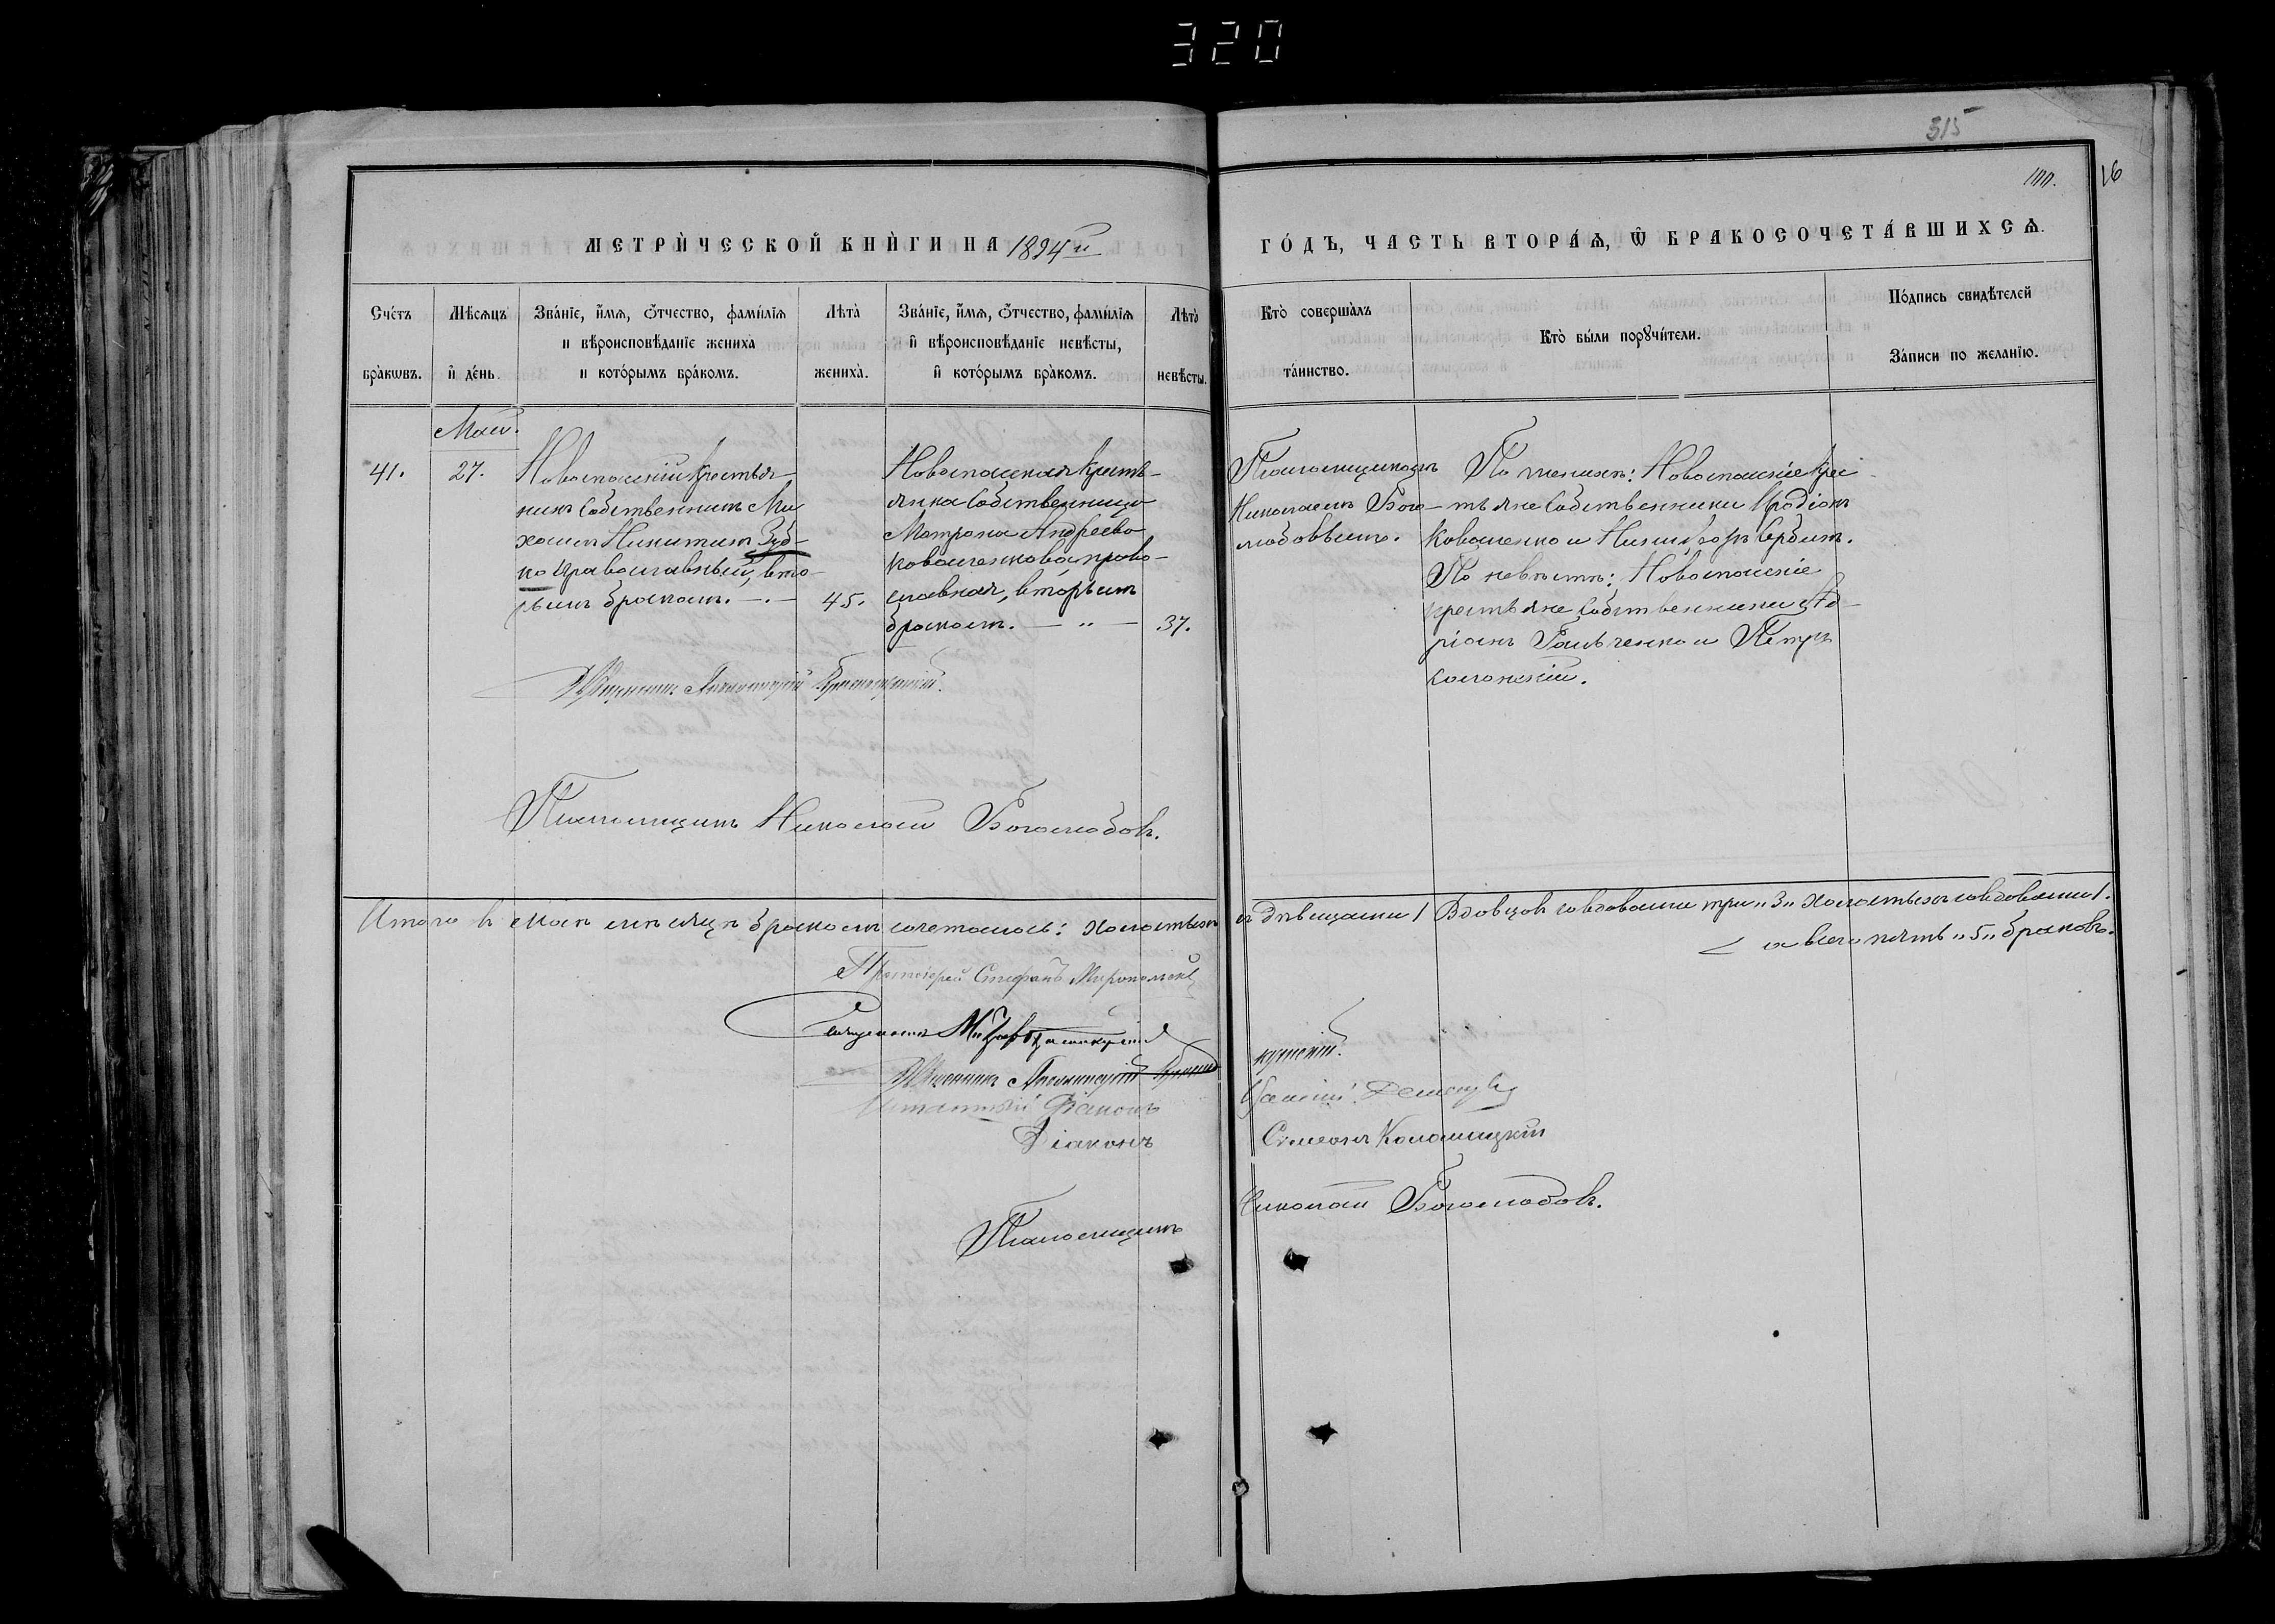 320
315
100.
16
МЕТРИ́ЧЕСКОЙ КНИ́ГИ НА 1894й
ГО́ДЪ, ЧАСТЬ ВТОРА́Я, Ѿ БРАКОСОЧЕТА́ВШИХСЯ.
Сче́тъ бра́кѡвъ.
Мѣ́сяцъ и҆ де́нь.
Зва́нїе, и҆́мя, ѻ҆́тчество, фами́лїя
и вѣроисповѣ́данїе жениха̀
и кото́рымъ бра́комъ.
Лѣта̀
жениха̀.
Зва́нїе, и҆́мя, ѻ҆́тчество, фами́лїя
и҆ вѣроисповѣ́данїе невѣ́сты,
и҆ кото́рымъ бра́комъ.
Лѣта̀
невѣ́сты.
Кто̀ соверша́лъ
та́инство.
Кто̀ бы́ли порꙋчи́тели.
По́дпись свидѣ́телей
За́писи по жела́нїю.
Май.
41.
27.
Новоспаскій крестья-
нинъ собственникъ Ми
хаилъ Никитинъ Зуб-
ко православный, вто-
рымъ бракомъ.
45.
Новоспаская кресть-
янка собственница
Матрона Андреева
Коваленкова право-
славная, вторымъ
бракомъ.
37.
Псаломщикомъ
Николаемъ Бого-
любовымъ.
По женихѣ: Новоспаскіе кре
стьяне собственники Иродіонъ
Коваленко и Никифоръ Сербинъ.
По невѣстѣ: Новоспаскіе
крестьяне собственники Ад-
ріанъ Гальченко и Петръ
Священникъ
Псаломщикъ Николай Боголюбовъ.
Итого въ Маѣ мѣсяцѣ бракомъ сочеталось: холостыхъ съ дѣвицами 1 Вдовцовъ со вдовами три „3„ холостыхъ со вдовами 1.
а всего пять „5„ браковъ.
Протоіерей Стефанъ
Священникъ
Священникъ
Штатный Діаконъ
Діаконъ Симеонъ Коломацкій
Псаломщикъ Николай Боголюбовъ.